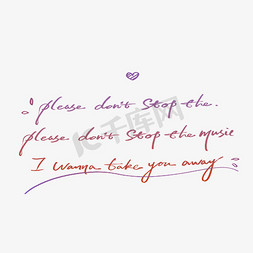 please don't stop the.
please don't stop the music
I wanna take you away